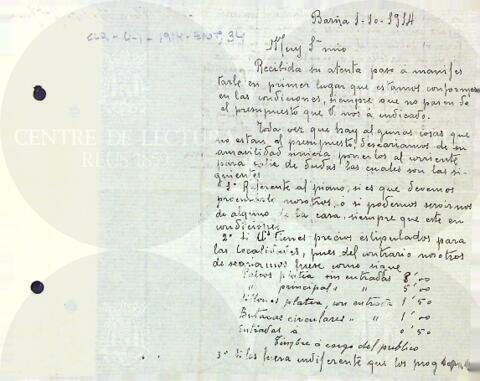 Barña 1-10-1914
Muy Sr mio
Recibida su atenta paso á manifes
tarle en primer lugar que estamos conformes
en las condiciones, siempre que no pasen de
el presupuesto que V. nos á indicado.
Toda vez que hay algunas cosas que
no estan el presupuesto, desearíamos de su
amabilidad pusiera ponerlos al corriente
para salir de dudas las cuales son las si-
guientes
1º Referente al piano, si es que devemos
procurarle nosotros, ó si podemos servirnos
de alguno de la casa, siempre que esté en
condiciones
2º Si Vs tienes precios estipulados para
las localidades, pues del contrario nosotros
deseariamos fuese como sigue
Palcos platea sin entradas 8'00
" principals " 5'00
Sillones platea, con entrada 1'50
Butacas circulares " " 1'00
Entradas á 0'50
Timbre á cargo del publico
3º Si les fuera indiferente que los
CENTRE DE LECTURA
REUS